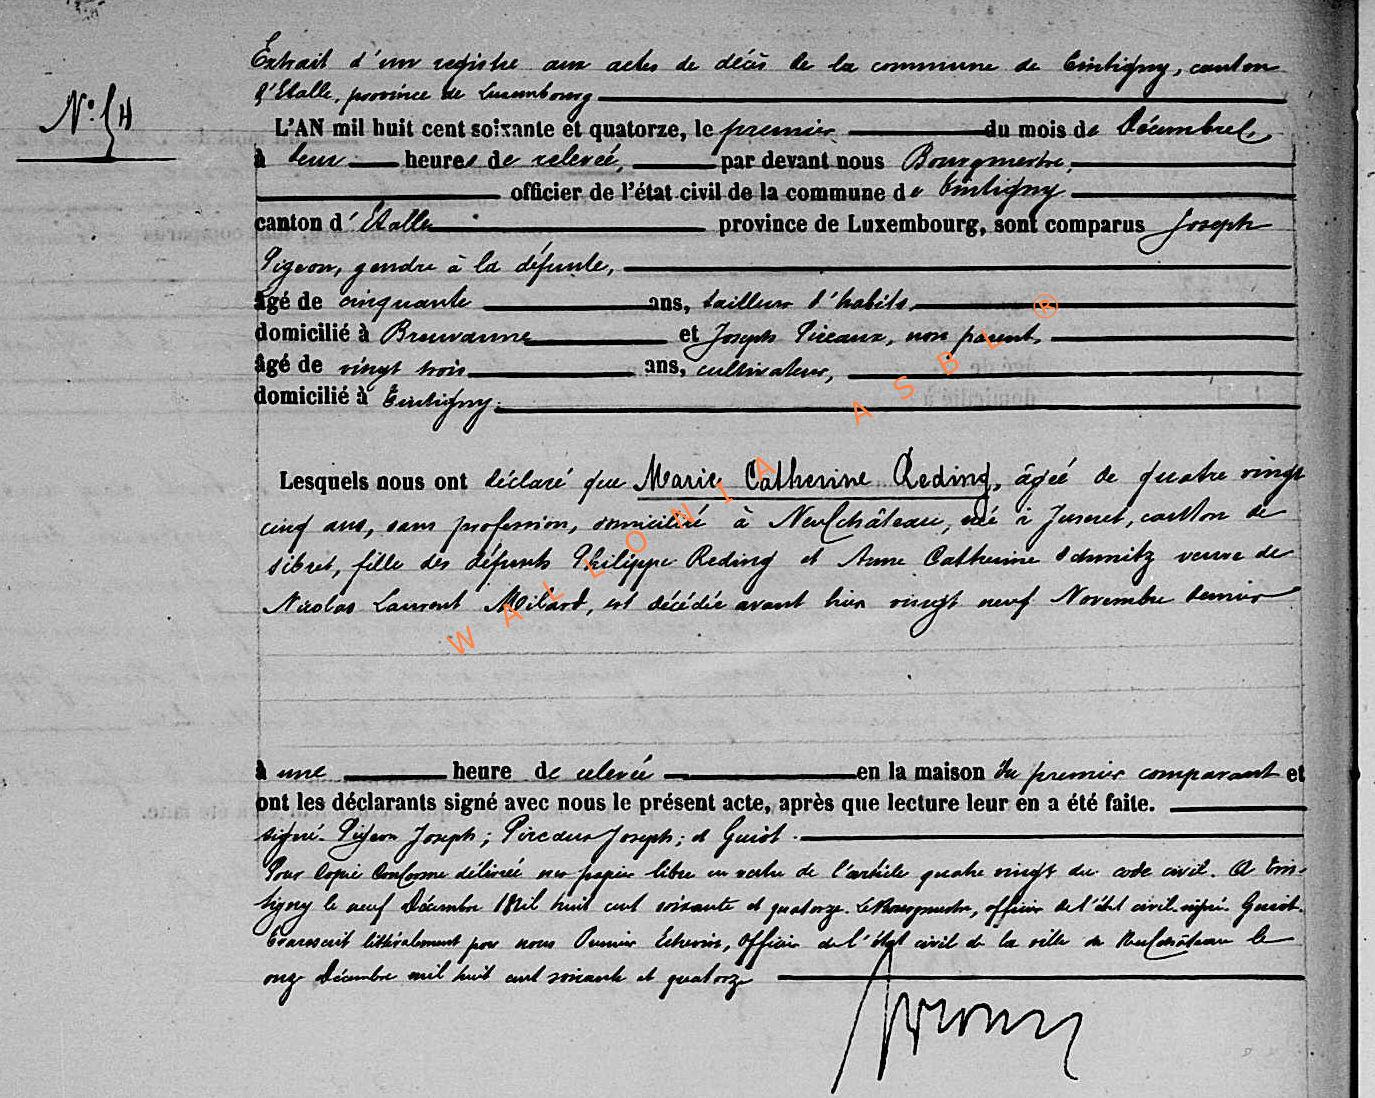 Extrait d'un registre aux actes de décès de la commune de Tintigny, canton
d'Etalle, province de Luxembourg
N° 54
L'AN mil huit cent soixante et quatorze, le premier du mois de Décembre
à deux heures de relevée, par devant nous Bourgmestre,
officier de l'état civil de la commune de Tintigny
canton d'Etalle province de Luxembourg, sont comparus Joseph
Pigeon, gendre à la défunte,
âgé de cinquante ans, tailleur d'habits,
domicilié à Breuvanne et Joseph Pireaux, non parent,
âgé de vingt trois ans, cultivateur,
domicilié à Tintigny.
Lesquels nous ont déclaré que Marie Catherine Reding, âgée de quatre vingt
cinq ans, sans profession, domiciliée à Neufchâteau, née à Juseret, canton de
Sibret, fille des défunts Philippe Reding et Anne Catherine Schmitz veuve de
Nicolas Laurent Milard, est décédée avant hier vingt neuf Novembre dernier
à une heure de relevée en la maison du premier comparant et
ont les déclarants signé avec nous le présent acte, après que lecture leur en a été faite.
signé. Pigeon Joseph; Pireaux Joseph; et Guiot.
Pour Copie Conforme délivrée sur papier libre en vertu de l'article quatre vingt du code civil. A Tin-
tigny le neuf Décembre Mil huit cent soixante et quatorze. Le Bourgmestre, officier de l'état civil signé. Guiot.
Transcrit littéralement par nous Premier Echevin, Officier de l'état civil de la ville de Neufchâteau le
onze Décembre mil huit cent soixante et quatorze
WALLONIA ASBL ®